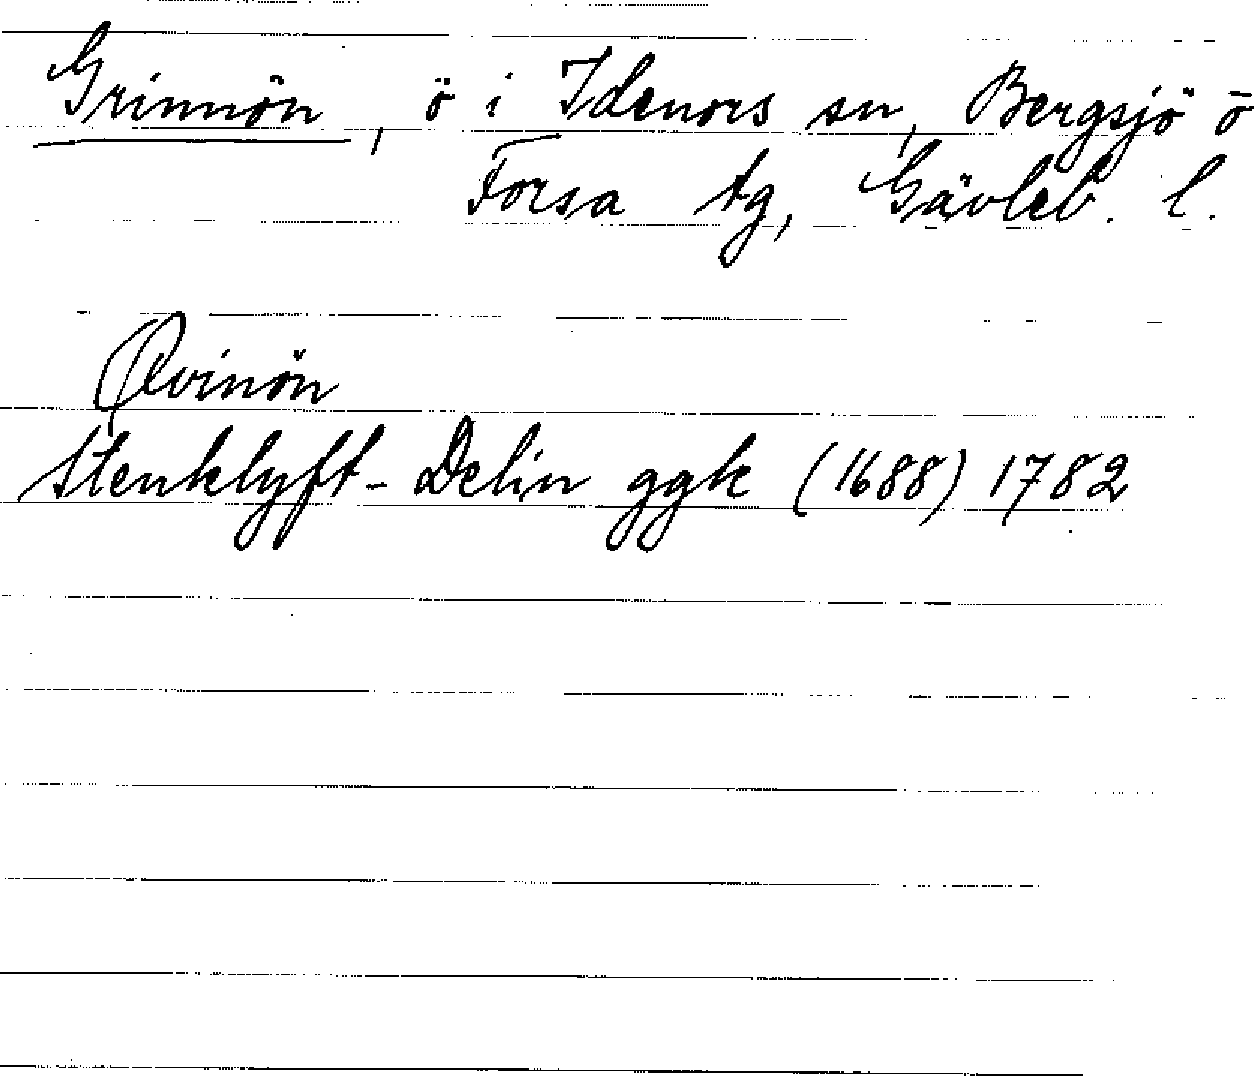 Grimnön, ö i Idenors sn, Bergsjö o
Forsa tg, Gävleb. l.
Qvinön
Stenklyft-Delin ggk (1688) 1782